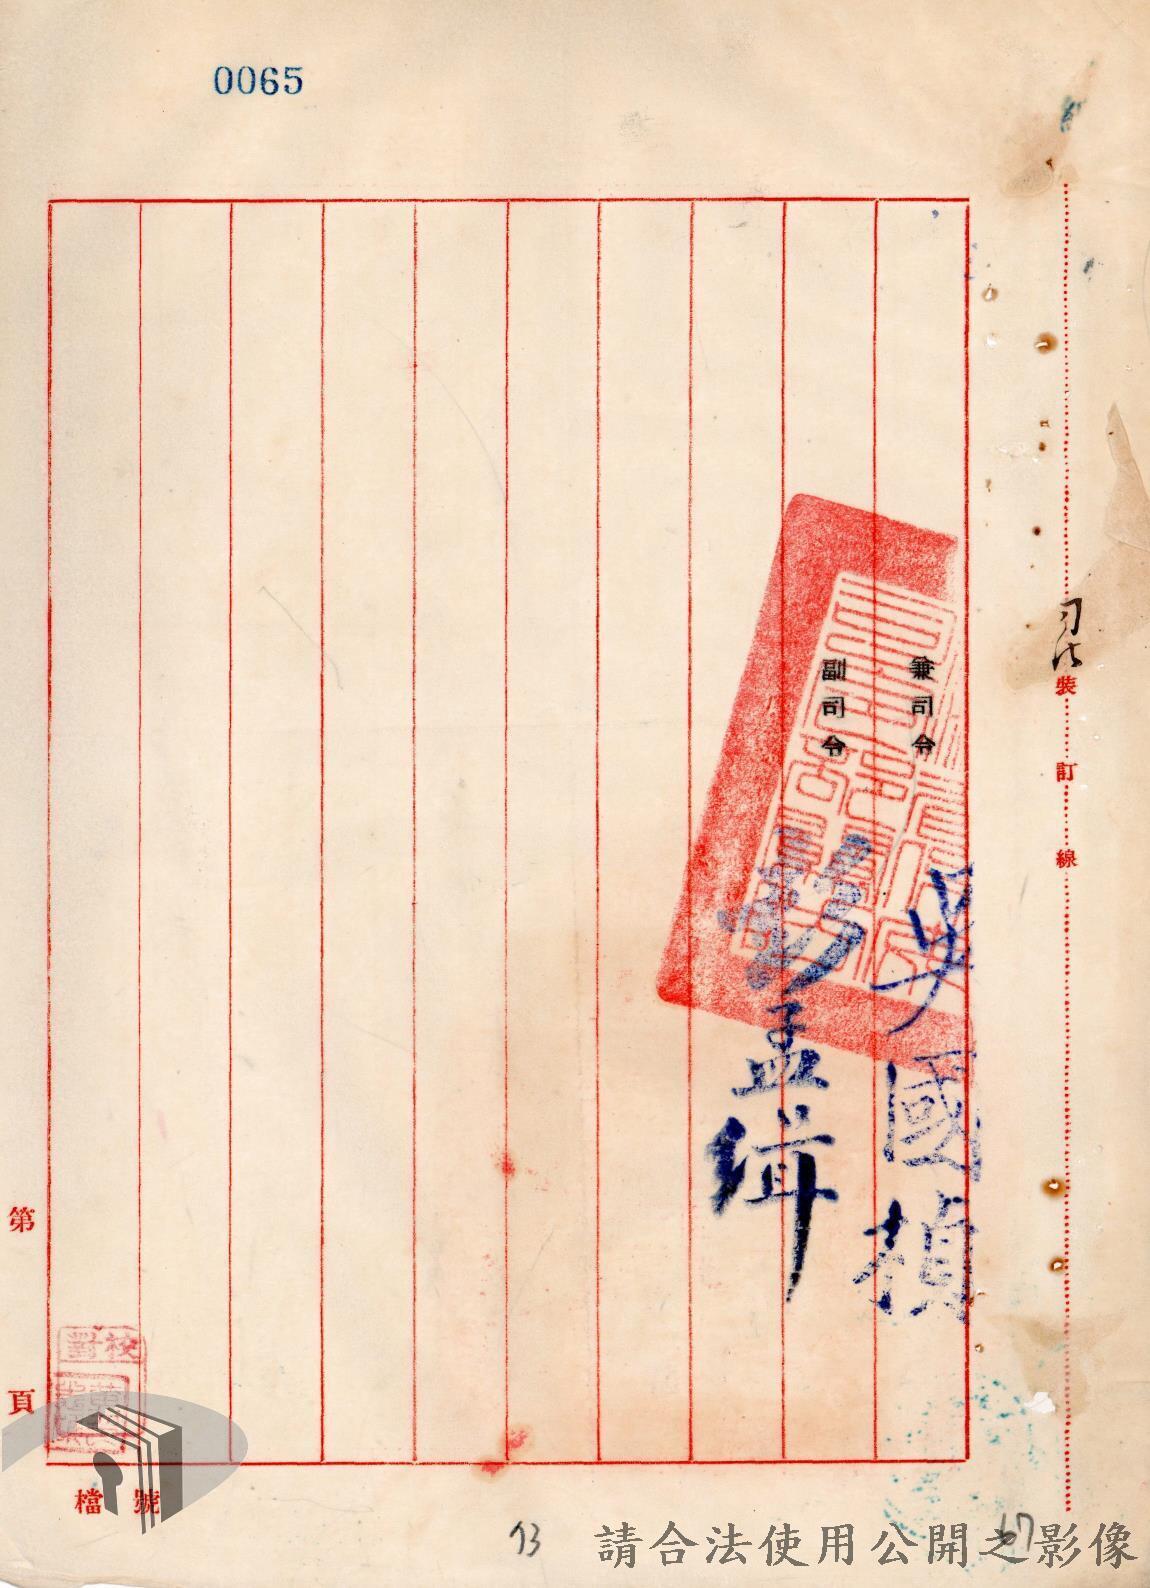 0065
兼司令 吳國楨
副司令 彭孟緝
裝訂線
第 頁
校對
檔 號
93
67
請合法使用公開之影像